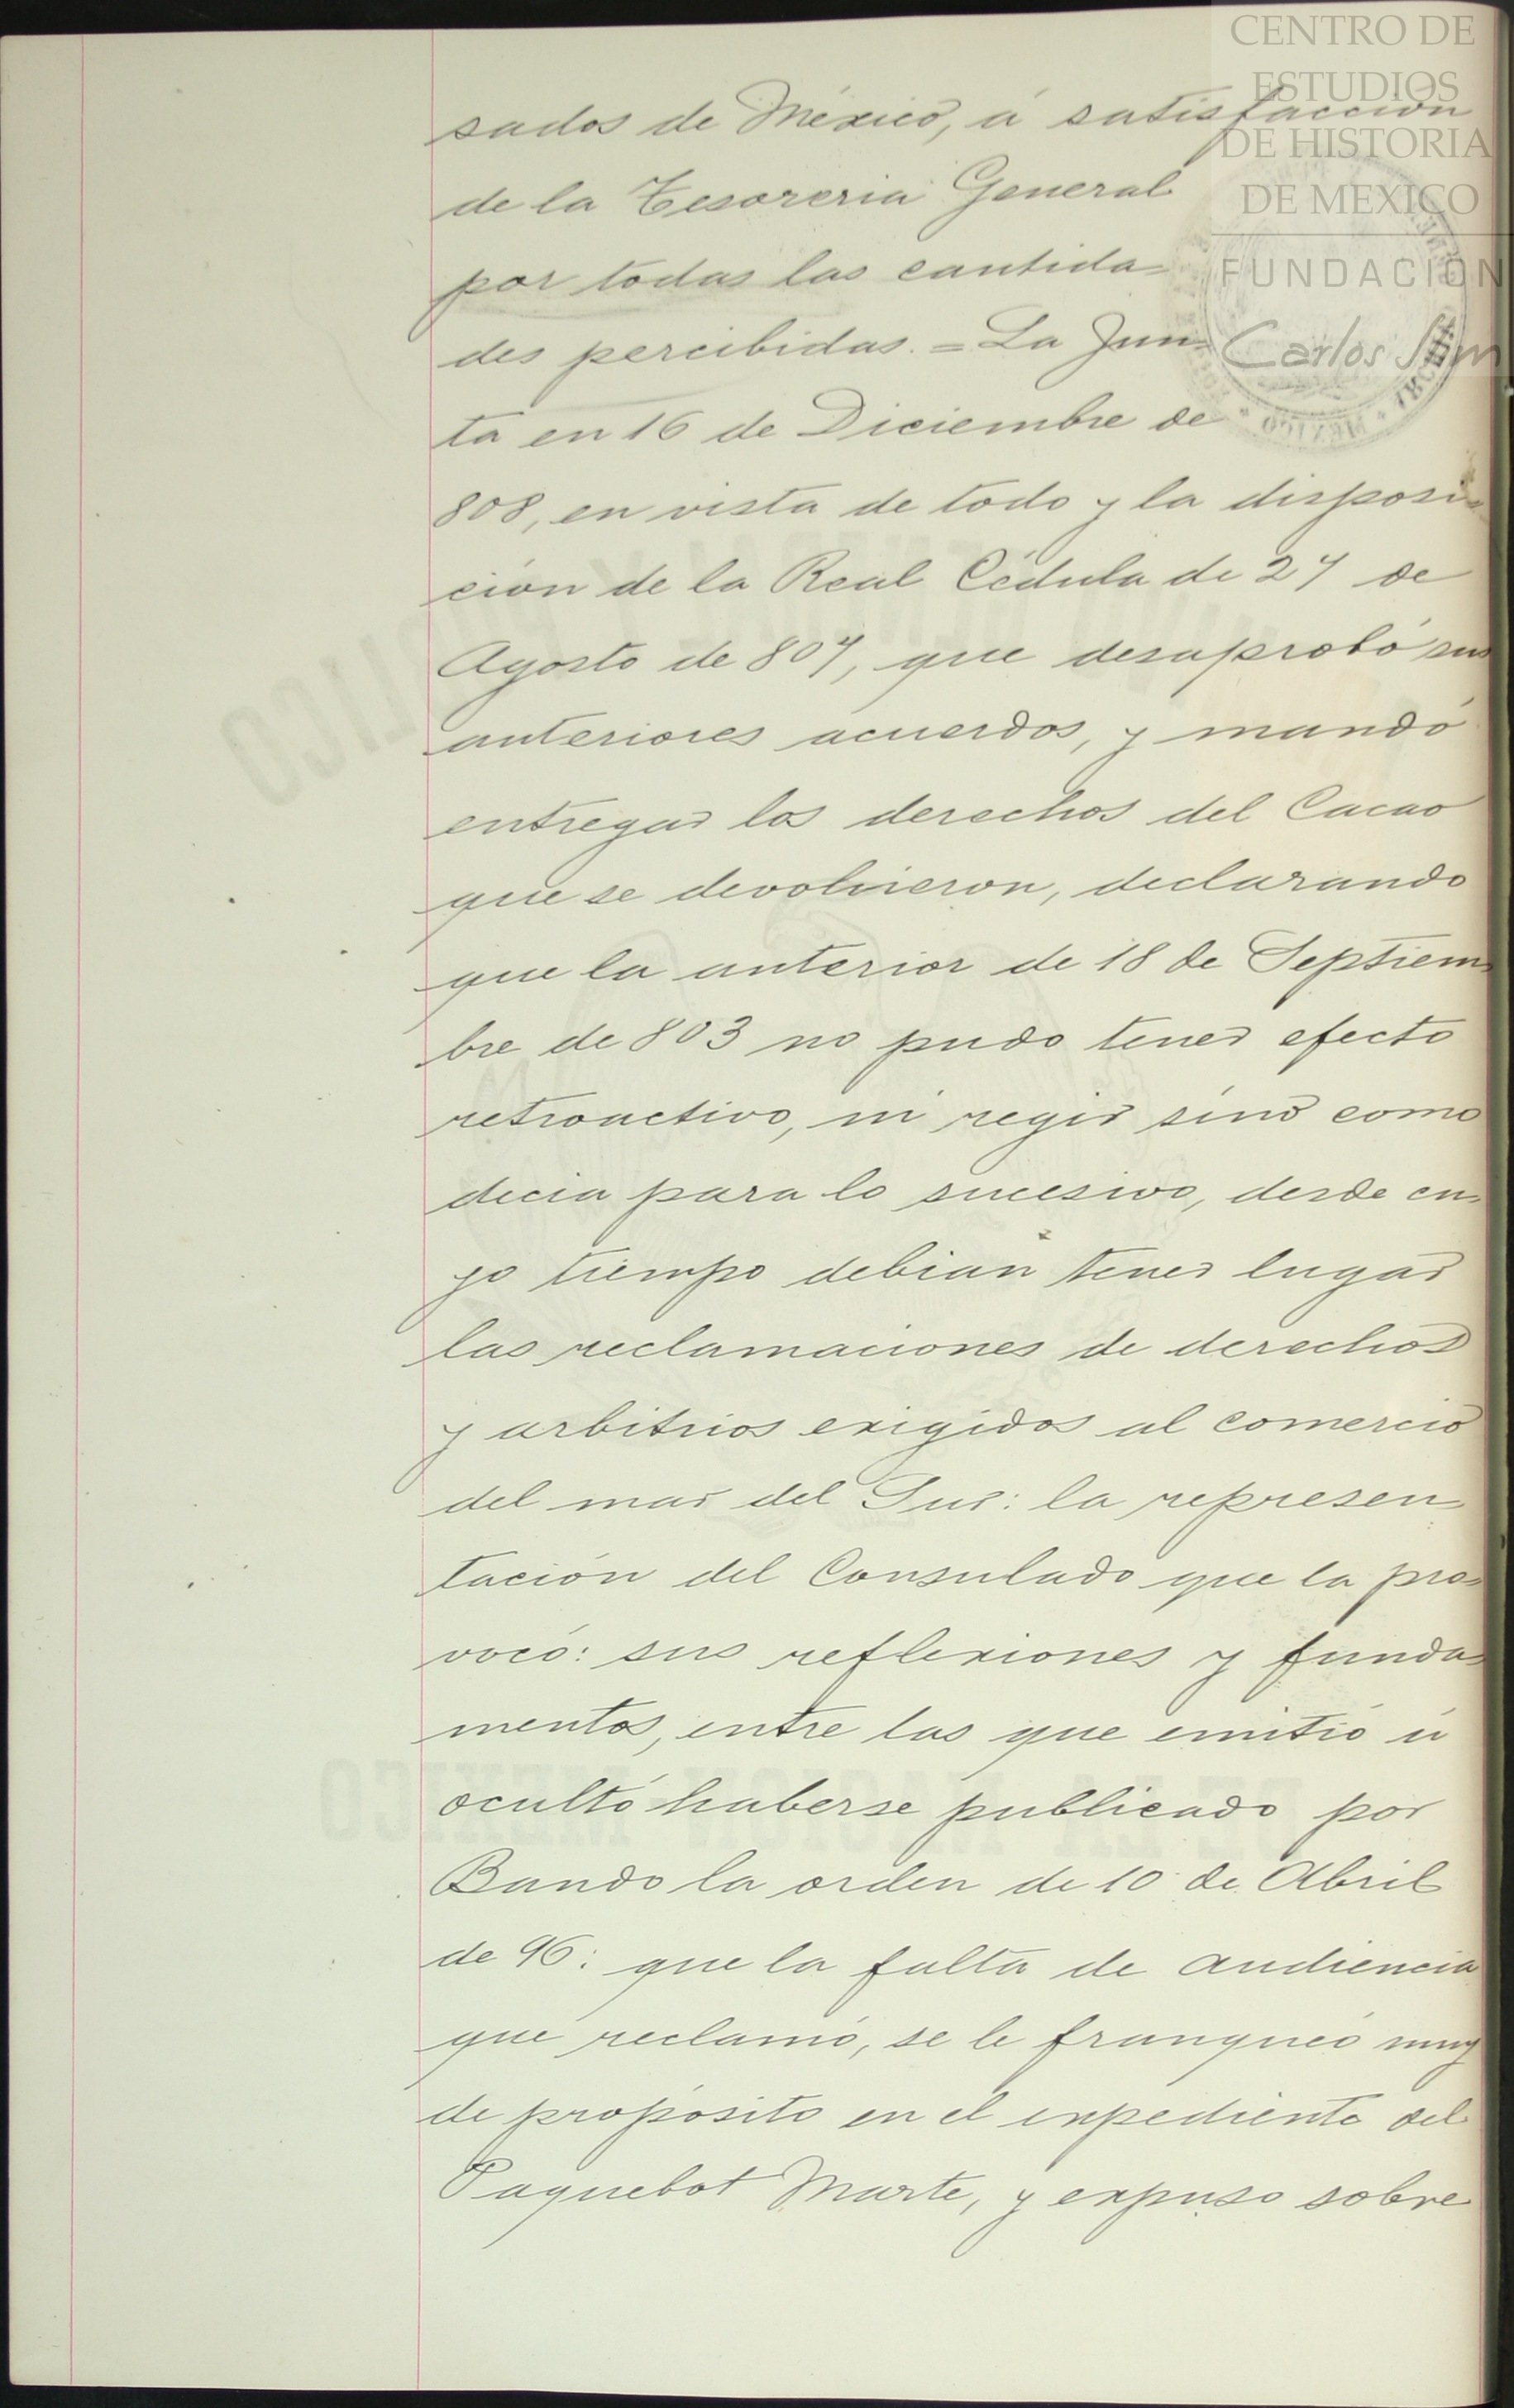 CENTRO DE
ESTUDIOS
DE HISTORIA
DE MEXICO
FUNDACIÓN
Carlos Slim
sados de México, á satisfacción
de la Tesoreria General
por todas las cantida=
des percibidas. = La Jun=
ta en 16 de Diciembre de
808, en vista de todo y la disposi=
ción de la Real Cédula de 27 de
Agosto de 807, que desaprobó sus
anteriores acuerdos, y mandó
entregar los derechos del Cacao
que se devolvieron, declarando
que la anterior de 18 de Septiem=
bre de 803 no pudo tener efecto
retroactivo, ni regir sinó como
decia para lo sucesivo, desde cu=
yo tiempo debian tener lugar
las reclamaciones de derechos
y arbitrios exigidos al comercio
del mar del Sur: la represen=
tación del Consulado que la pro=
vocó: sus reflexiones y funda=
mentos, entre las que emitió ú
ocultó haberse publicado por
Bando la orden de 10 de Abril
de 96: que la falta de audiencia
que reclamó, se le franqueó muy
de propósito en el expediente del
Paquebot Marte, y expuso sobre